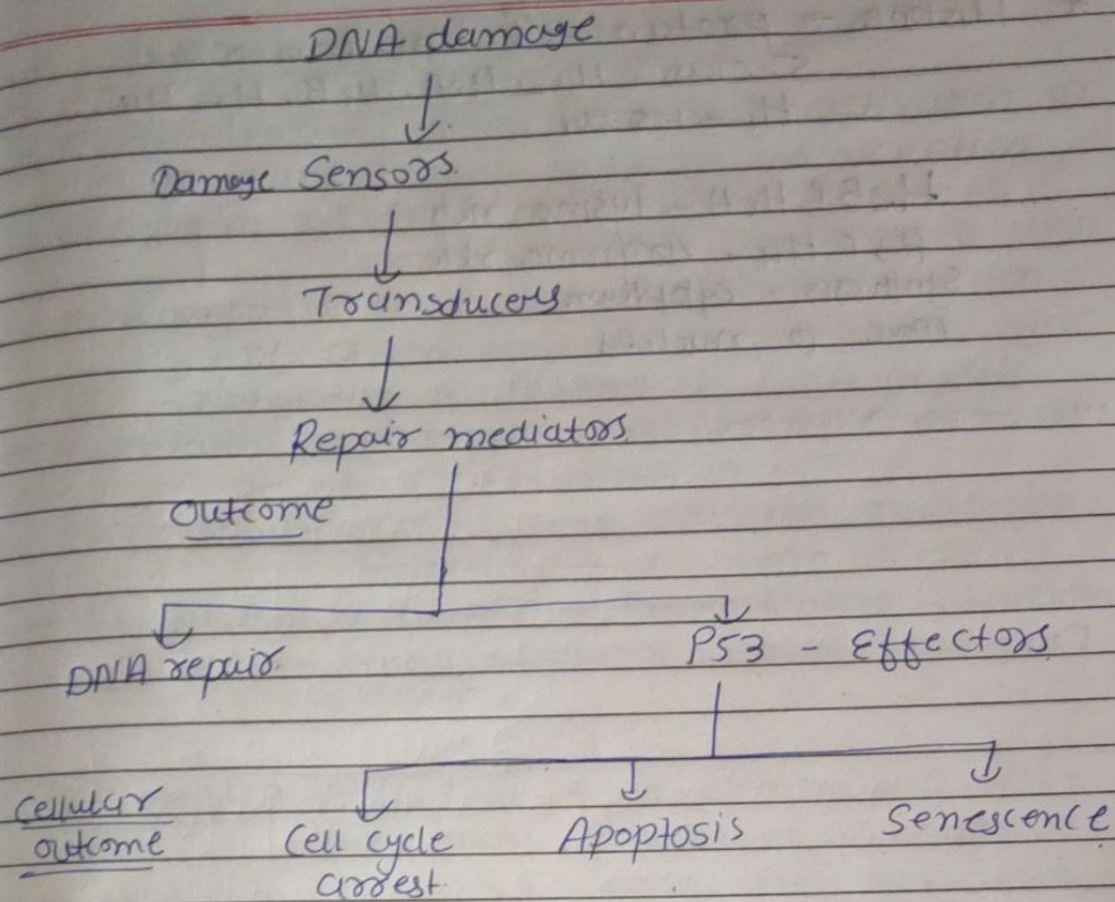 DNA damage
Damage Sensors
Transducers
Repair mediators
Outcome
DNA repair
P53 - Effectors
Cellular
outcome
Cell cycle
arrest
Apoptosis
Senescence